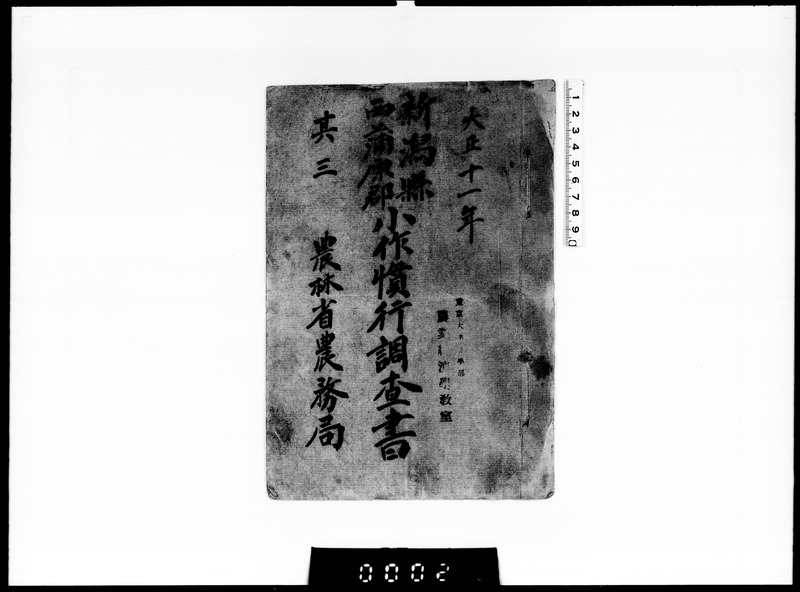 大正十一年
新潟縣
西蒲原郡
小作慣行調査書
其三
農林省農務局
東京大 學部
農 教室
1 2 3 4 5 6 7 8 9
0002